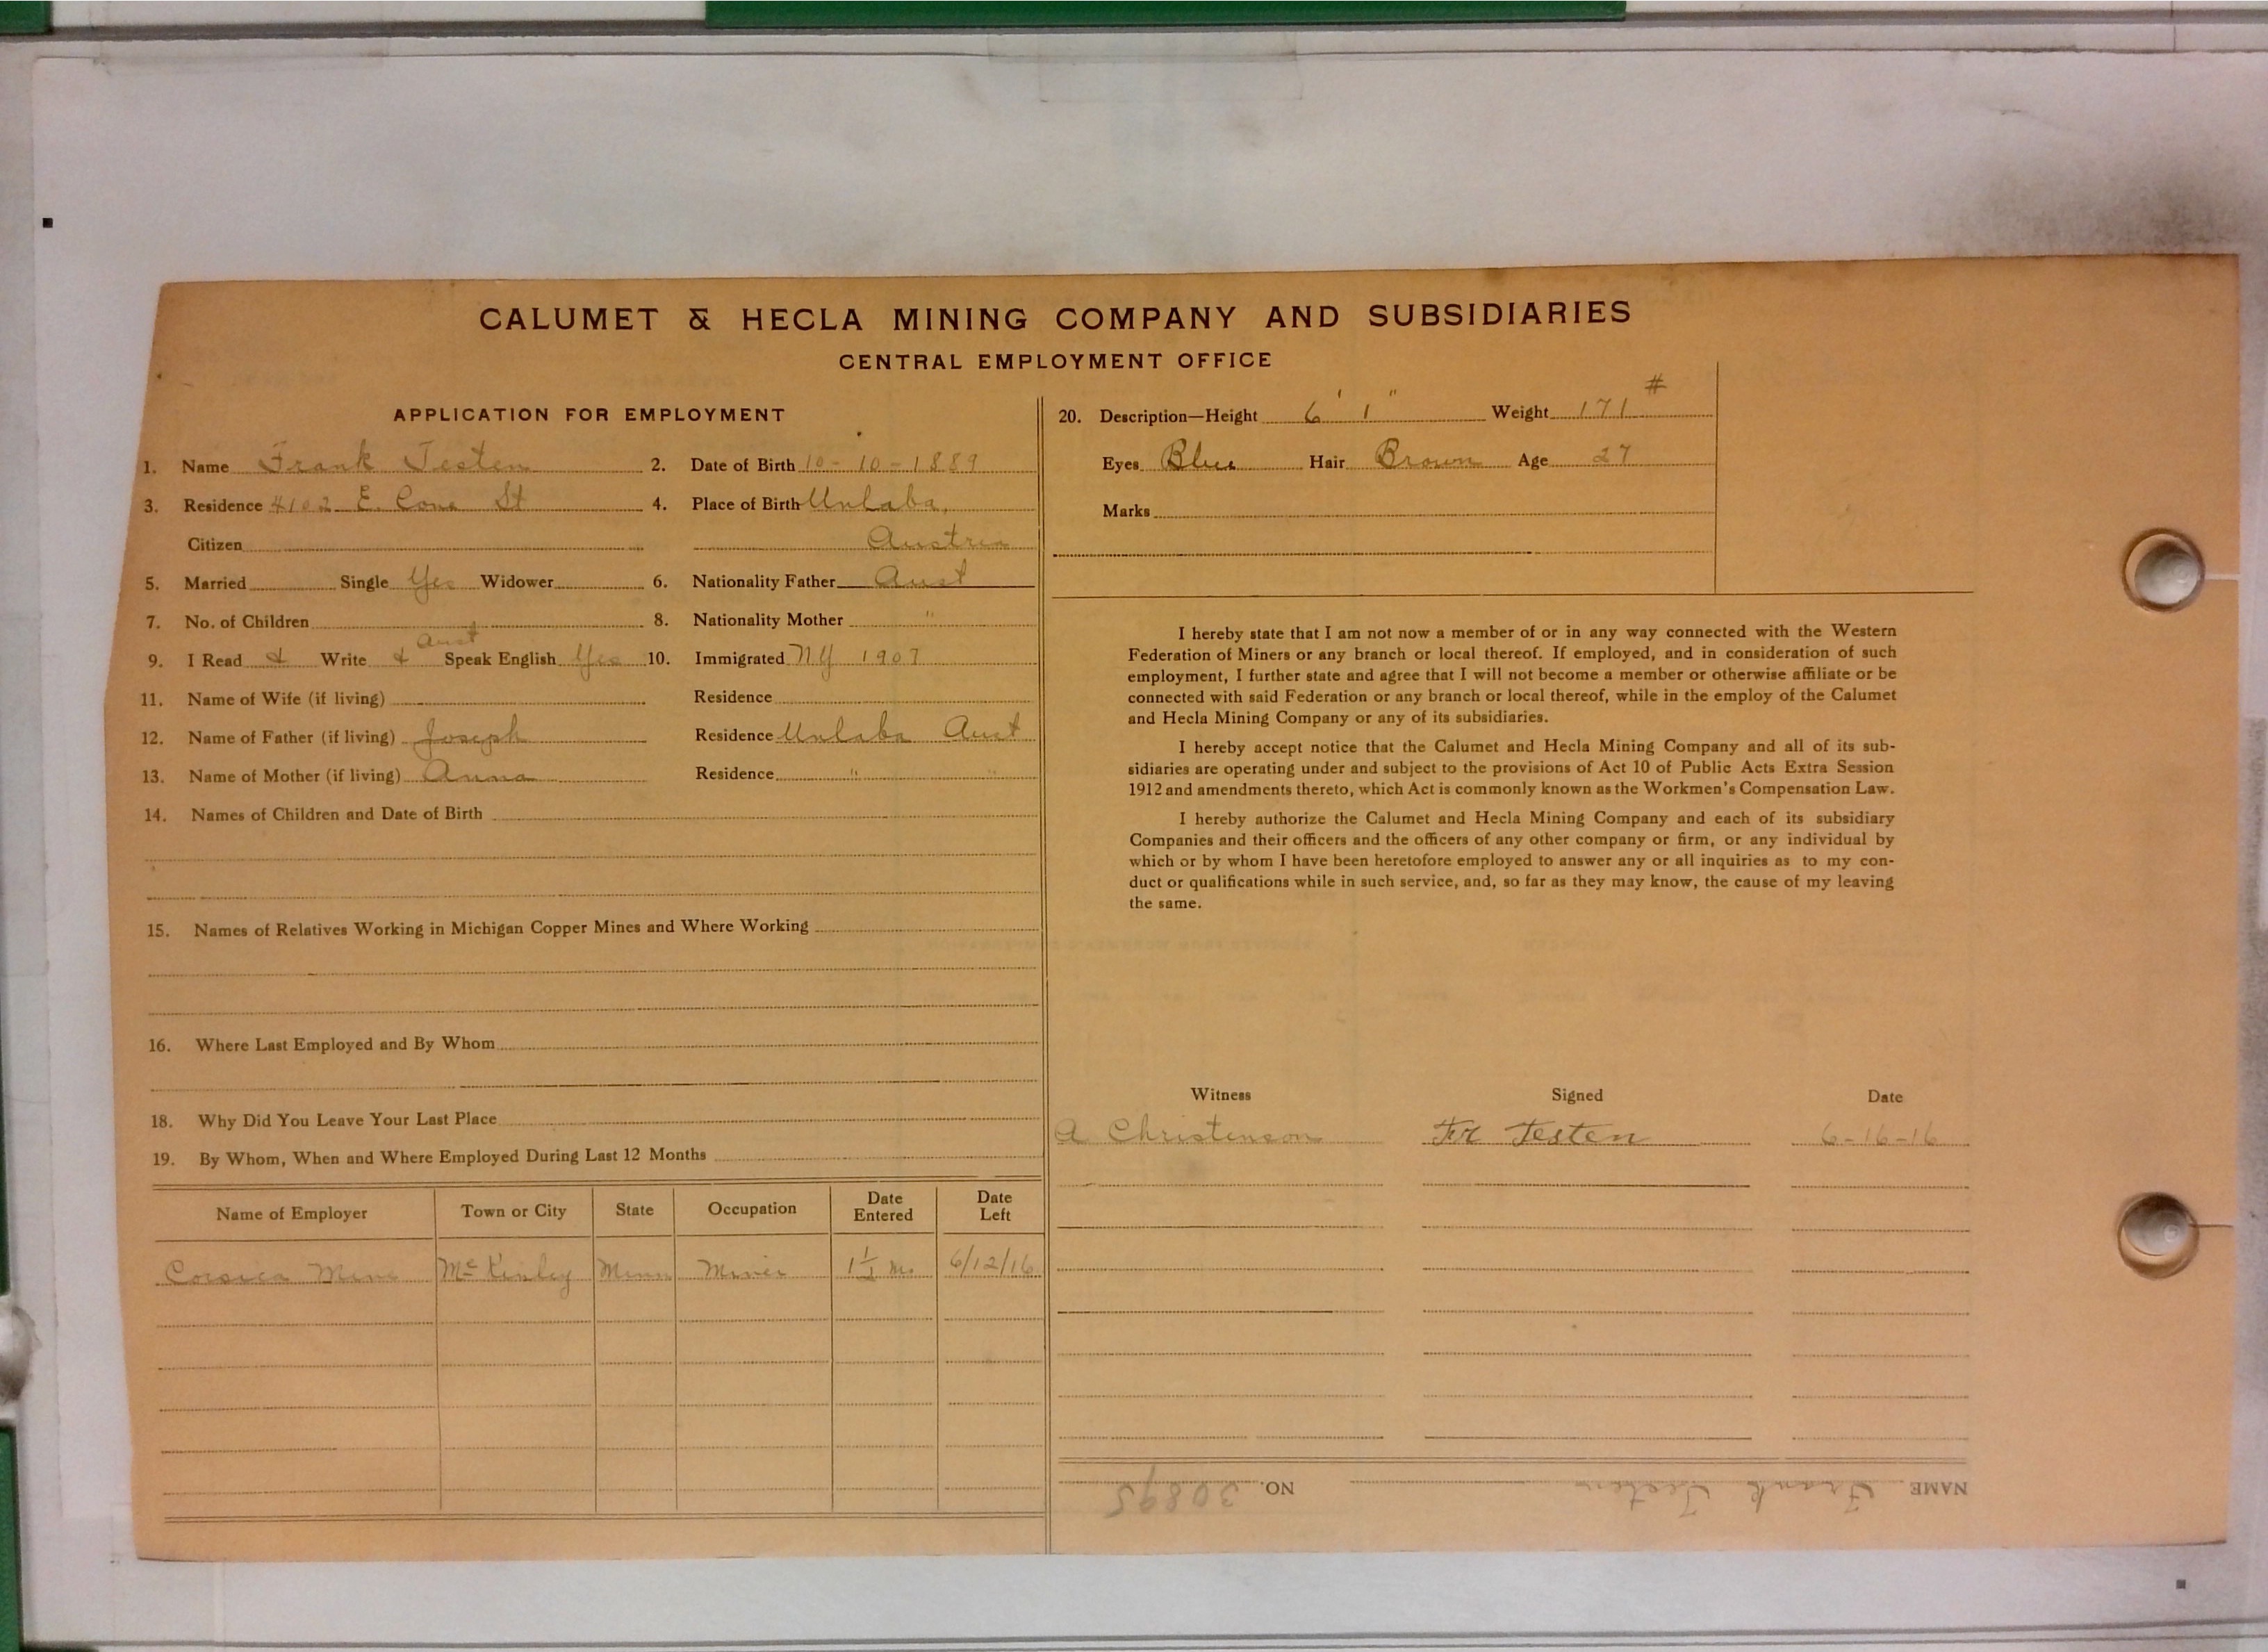 CALUMET & HECLA MINING COMPANY AND SUBSIDIARIES
CENTRAL EMPLOYMENT OFFICE
APPLICATION FOR EMPLOYMENT
1. Name Frank Testen 2. Date of Birth 10-10-1889
3. Residence 4102 E. Cone St 4. Place of Birth Unlaba,
Citizen Austria
5. Married Single Yes Widower 6. Nationality Father Aust
7. No. of Children 8. Nationality Mother "
Aust
9. I Read & Write & Speak English Yes 10. Immigrated NY 1907
11. Name of Wife (if living) Residence
12. Name of Father (if living) Joseph Residence Unlaba Aust
13. Name of Mother (if living) Anna Residence " "
14. Names of Children and Date of Birth
15. Names of Relatives Working in Michigan Copper Mines and Where Working
16. Where Last Employed and By Whom
18. Why Did You Leave Your Last Place
19. By Whom, When and Where Employed During Last 12 Months
Name of Employer Town or City State Occupation Date Entered Date Left
Corsica Mine McKinley Minn Miner 1½ Mo 6/12/16
20. Description—Height 6' 1" Weight 171#
Eyes Blue Hair Brown Age 27
Marks
I hereby state that I am not now a member of or in any way connected with the Western
Federation of Miners or any branch or local thereof. If employed, and in consideration of such
employment, I further state and agree that I will not become a member or otherwise affiliate or be
connected with said Federation or any branch or local thereof, while in the employ of the Calumet
and Hecla Mining Company or any of its subsidiaries.
I hereby accept notice that the Calumet and Hecla Mining Company and all of its sub-
sidiaries are operating under and subject to the provisions of Act 10 of Public Acts Extra Session
1912 and amendments thereto, which Act is commonly known as the Workmen's Compensation Law.
I hereby authorize the Calumet and Hecla Mining Company and each of its subsidiary
Companies and their officers and the officers of any other company or firm, or any individual by
which or by whom I have been heretofore employed to answer any or all inquiries as to my con-
duct or qualifications while in such service, and, so far as they may know, the cause of my leaving
the same.
Witness Signed Date
A Christenson Fr Testen 6-16-16
NAME Frank Testen NO. 30895